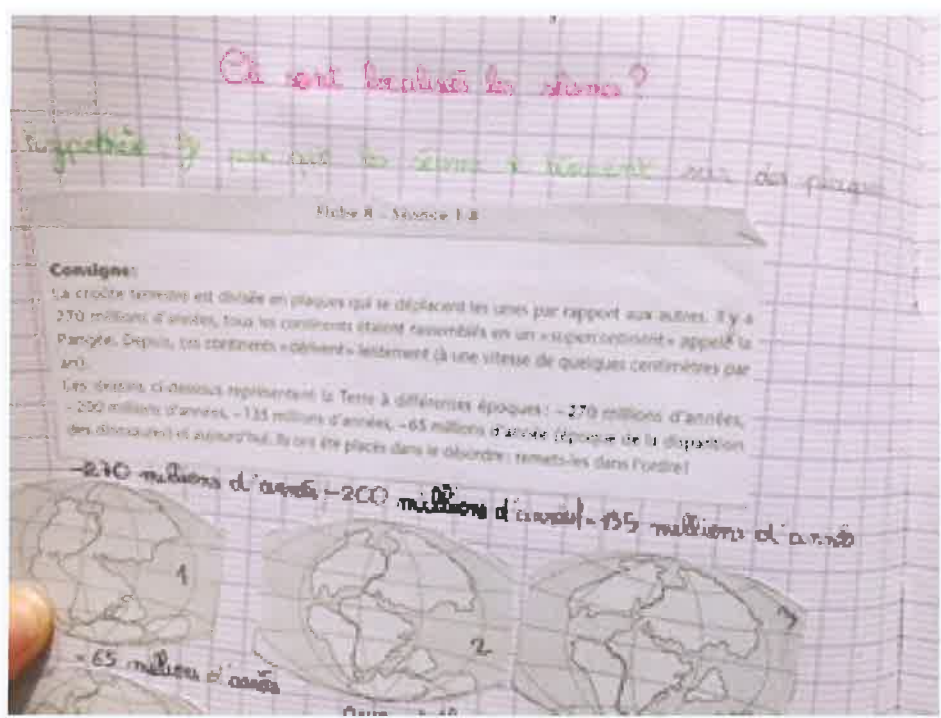 Où sont localisés les séismes ?
que les séisme sur des plaque
Fiche 8 - Séance 1-8
Consigne:
La croûte terrestre est divisée en plaques qui se déplacent les unes par rapport aux autres. Il y a
270 millions d'années, tous les continents étaient rassemblés en un «supercontinent» appelé la
Pangée. Depuis, ces continents «dérivent» lentement (à une vitesse de quelques centimètres par
an).
Les dessins ci-dessous représentent la Terre à différentes époques: -270 millions d'années,
-200 millions d'années, -135 millions d'années, -65 millions d'années (époque de la disparition
des dinosaures) et aujourd'hui. Ils ont été placés dans le désordre: remets-les dans l'ordre!
-270 millions d'années -200 millions d'années -135 millions d'année
1
2
3
-65 millions d'années